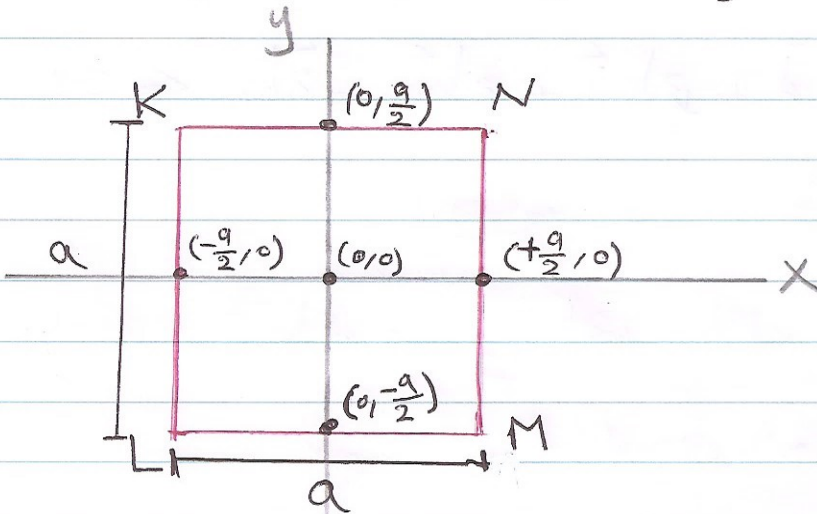 y
K (0, a/2) N
a (-a/2, 0) (0,0) (+a/2, 0) X
(0, -a/2)
L M
a